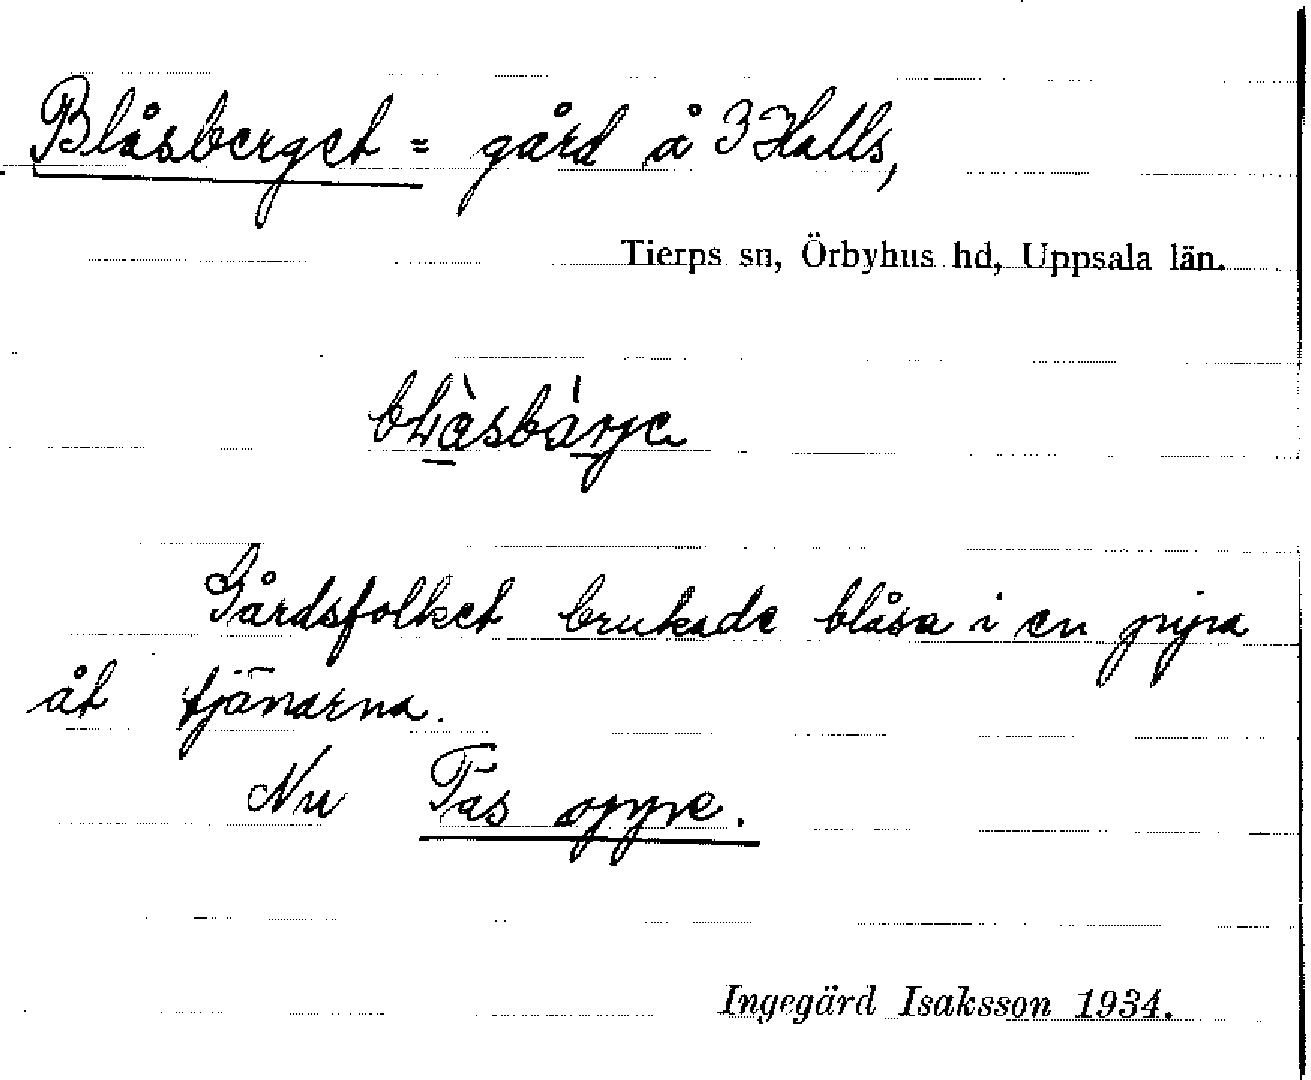 Blåsberget = gård å 3 Halls,
Tierps sn, Örbyhus hd, Uppsala län.
bḷà̱sbárje
Gårdsfolket brukade blåsa i en pipa
åt tjänarna.
Nu Pas oppe.
Ingegärd Isaksson 1934.